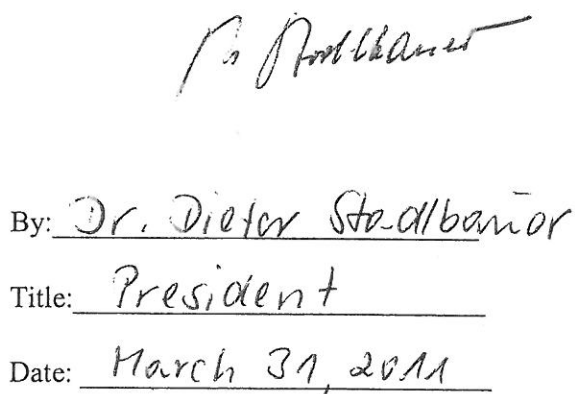 Stadlbauer
By: Dr. Dieter Stadlbauer
Title: President
Date: March 31, 2011